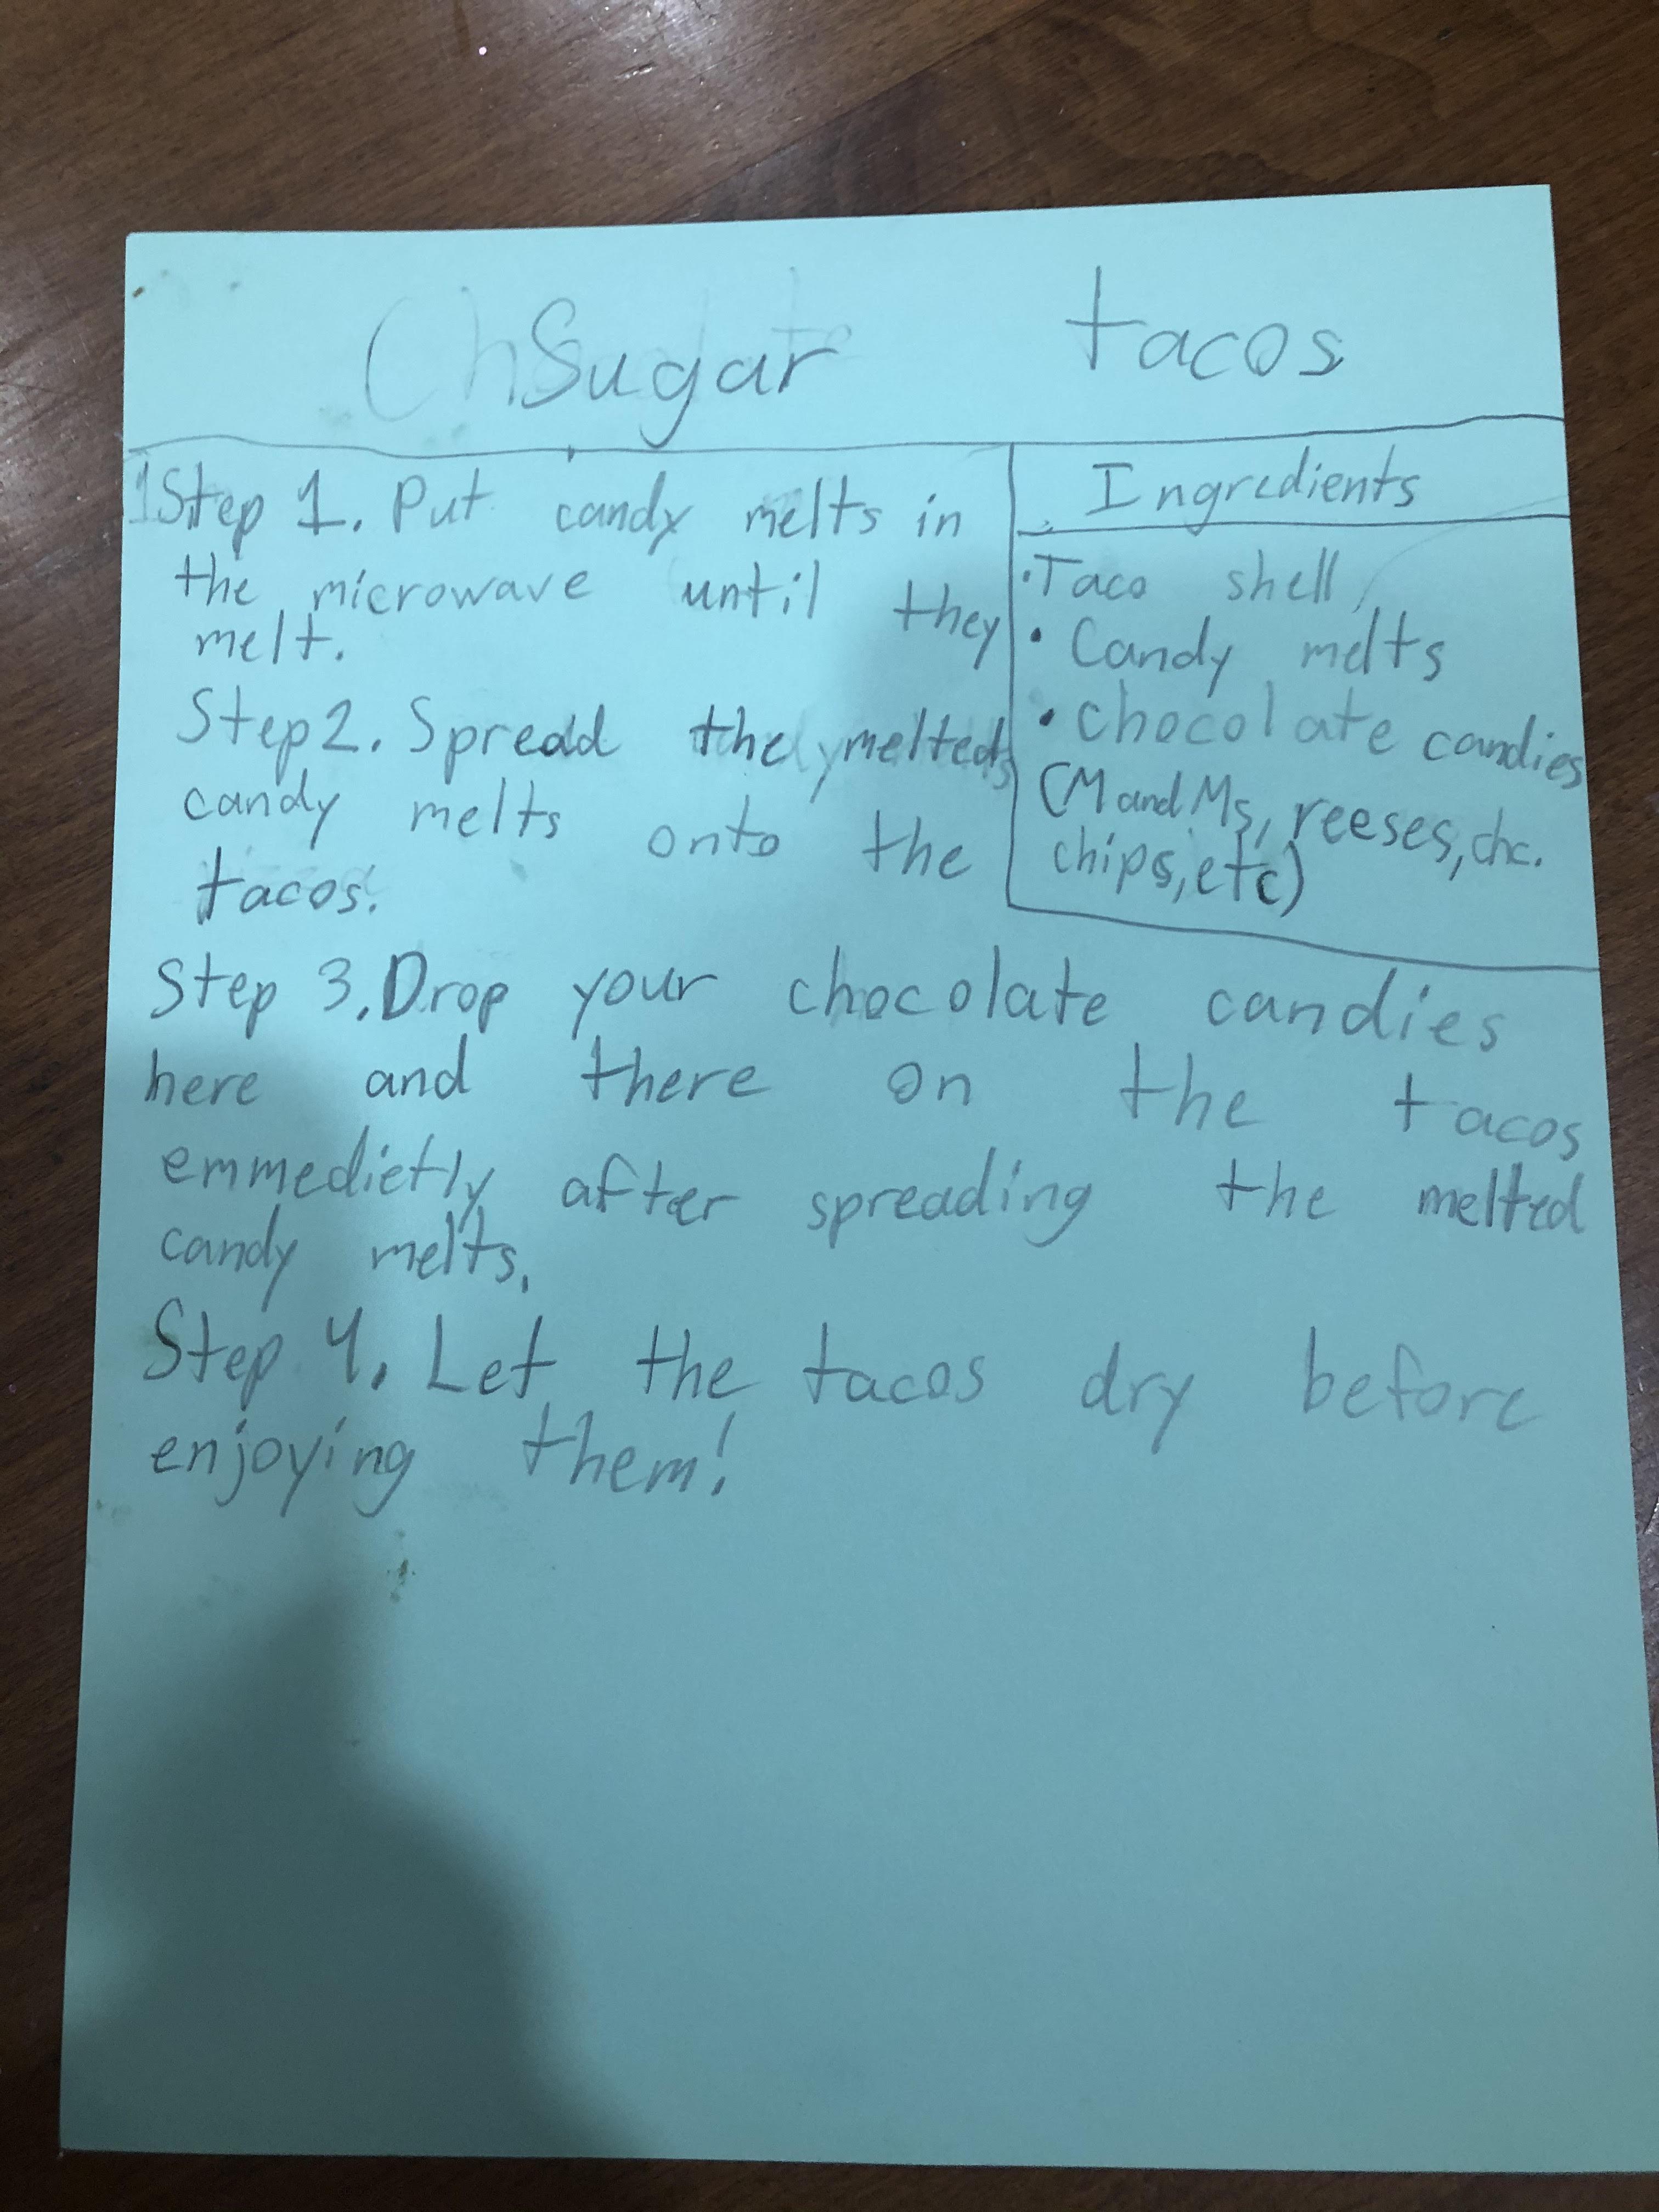 Sugar tacos
Step 1. Put candy melts in
the microwave until they
melt.
Step 2. Spread the melted
candy melts onto the
tacos.
Ingredients
• Taco shell
• Candy melts
• chocolate candies
(M and Ms, reeses, choc.
chips, etc)
Step 3. Drop your chocolate candies
here and there on the tacos
emmedietly after spreading the melted
candy melts.
Step 4. Let the tacos dry before
enjoying them!